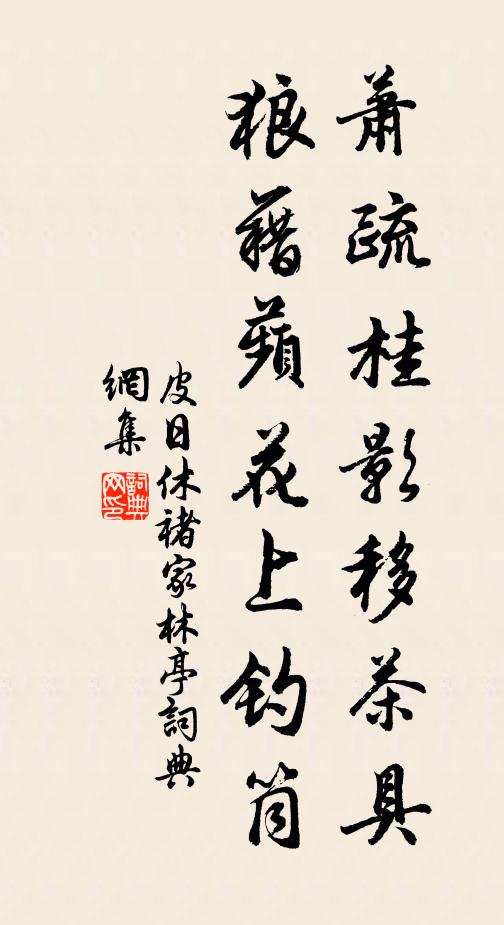 蕭疏桂影移茶具
狼藉蘋花上釣筒
皮日休褚家林亭詞典
網集
詞典网印